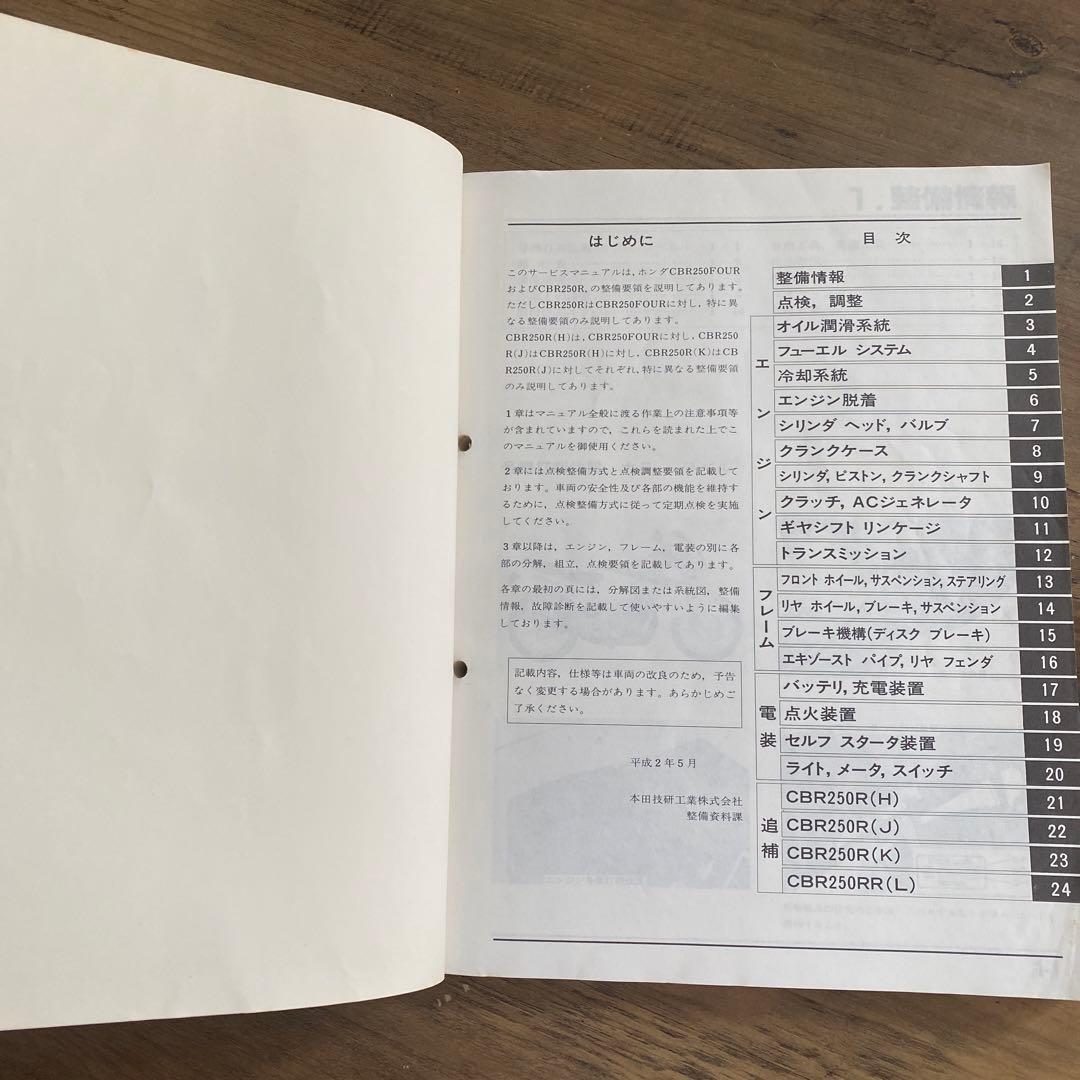 はじめに
このサービスマニュアルは，ホンダCBR250FOUR
およびCBR250R，の整備要領を説明してあります。
ただしCBR250RはCBR250FOURに対し，特に異
なる整備要領のみ説明してあります。
CBR250R(H)は，CBR250FOURに対し，CBR250
R(J)はCBR250R(H)に対し，CBR250R(K)はCB
R250R(J)に対してそれぞれ，特に異なる整備要領
のみ説明してあります。
1章はマニュアル全般に渡る作業上の注意事項等
が含まれていますので，これらを読まれた上でこ
のマニュアルを御使用ください。
2章には点検整備方式と点検調整要領を記載して
おります。車両の安全性及び各部の機能を維持す
るために，点検整備方式に従って定期点検を実施
してください。
3章以降は，エンジン，フレーム，電装の別に各
部の分解，組立，点検要領を記載してあります。
各章の最初の頁には，分解図または系統図，整備
情報，故障診断を記載して使いやすいように編集
しております。
記載内容，仕様等は車両の改良のため，予告
なく変更する場合があります。あらかじめご
了承ください。
平成2年5月
本田技研工業株式会社
整備資料課
目次
整備情報 1
点検，調整 2
エンジン
オイル潤滑系統 3
フューエル システム 4
冷却系統 5
エンジン脱着 6
シリンダ ヘッド，バルブ 7
クランクケース 8
シリンダ，ピストン，クランクシャフト 9
クラッチ，ACジェネレータ 10
ギヤシフト リンケージ 11
トランスミッション 12
フレーム
フロント ホイール，サスペンション，ステアリング 13
リヤ ホイール，ブレーキ，サスペンション 14
ブレーキ機構(ディスク ブレーキ) 15
エキゾースト パイプ，リヤ フェンダ 16
電装
バッテリ，充電装置 17
点火装置 18
セルフ スタータ装置 19
ライト，メータ，スイッチ 20
追補
CBR250R(H) 21
CBR250R(J) 22
CBR250R(K) 23
CBR250RR(L) 24